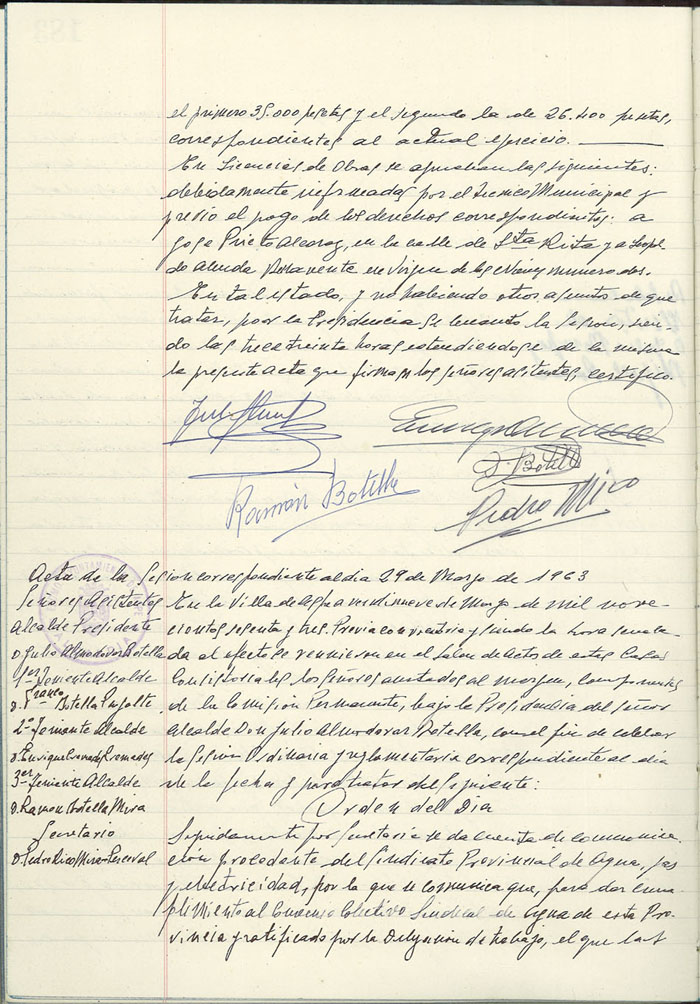 el primero 35.000 pesetas y el segundo la de 26.400 pesetas,
correspondientes al actual ejercicio.
En Licencias de Obras se aprueban las siguientes:
debidamente informadas por el Tecnico Municipal y
previo el pago de los derechos correspondientes: a
Jose Prieto Alcaraz, en la calle de Sta Rita y a Leopol-
do Benavente en Virgen de las Nieves numero dos.
En tal estado, y no habiendo otros asuntos de que
tratar, por la Presidencia se levanto la sesion, sien-
do las trece treinta horas extendiendose de la misma
la presente acta que firman los señores asistentes, certifico.
Ramón Botella
Botella
Pedro Mico
Acta de la Sesion correspondiente al dia 29 de Marzo de 1963
Señores Asistentes
Alcalde Presidente
D. Julio Almodovar Botella
1er Teniente Alcalde
D. Franco Botella
2º Teniente Alcalde
D. Enrique
3er Teniente Alcalde
D. Ramon Botella Mira
Secretario
D. Pedro
En la Villa de Aspe a veintinueve de Marzo de mil nove-
cientos sesenta y tres. Previa convocatoria y siendo la hora señala-
da al efecto se reunieron en el Salon de Actos de estas Casas
Consistoriales los Señores anotados al margen, componentes
de la Comision Permanente, bajo la Presidencia del Señor
Alcalde Don Julio Almodovar Botella, con el fin de celebrar
la Sesion Ordinaria y reglamentaria correspondiente al dia
de la fecha y para tratar del siguiente:
Orden del Dia
Seguidamente por Secretaria se da cuenta de comunica-
ción procedente del Sindicato Provincial de Agua, gas
y electricidad, por la que se comunica que, para dar cum-
plimiento al Convenio Colectivo Sindical de agua de esta Pro-
vincia y ratificado por la Delegacion de trabajo, el que